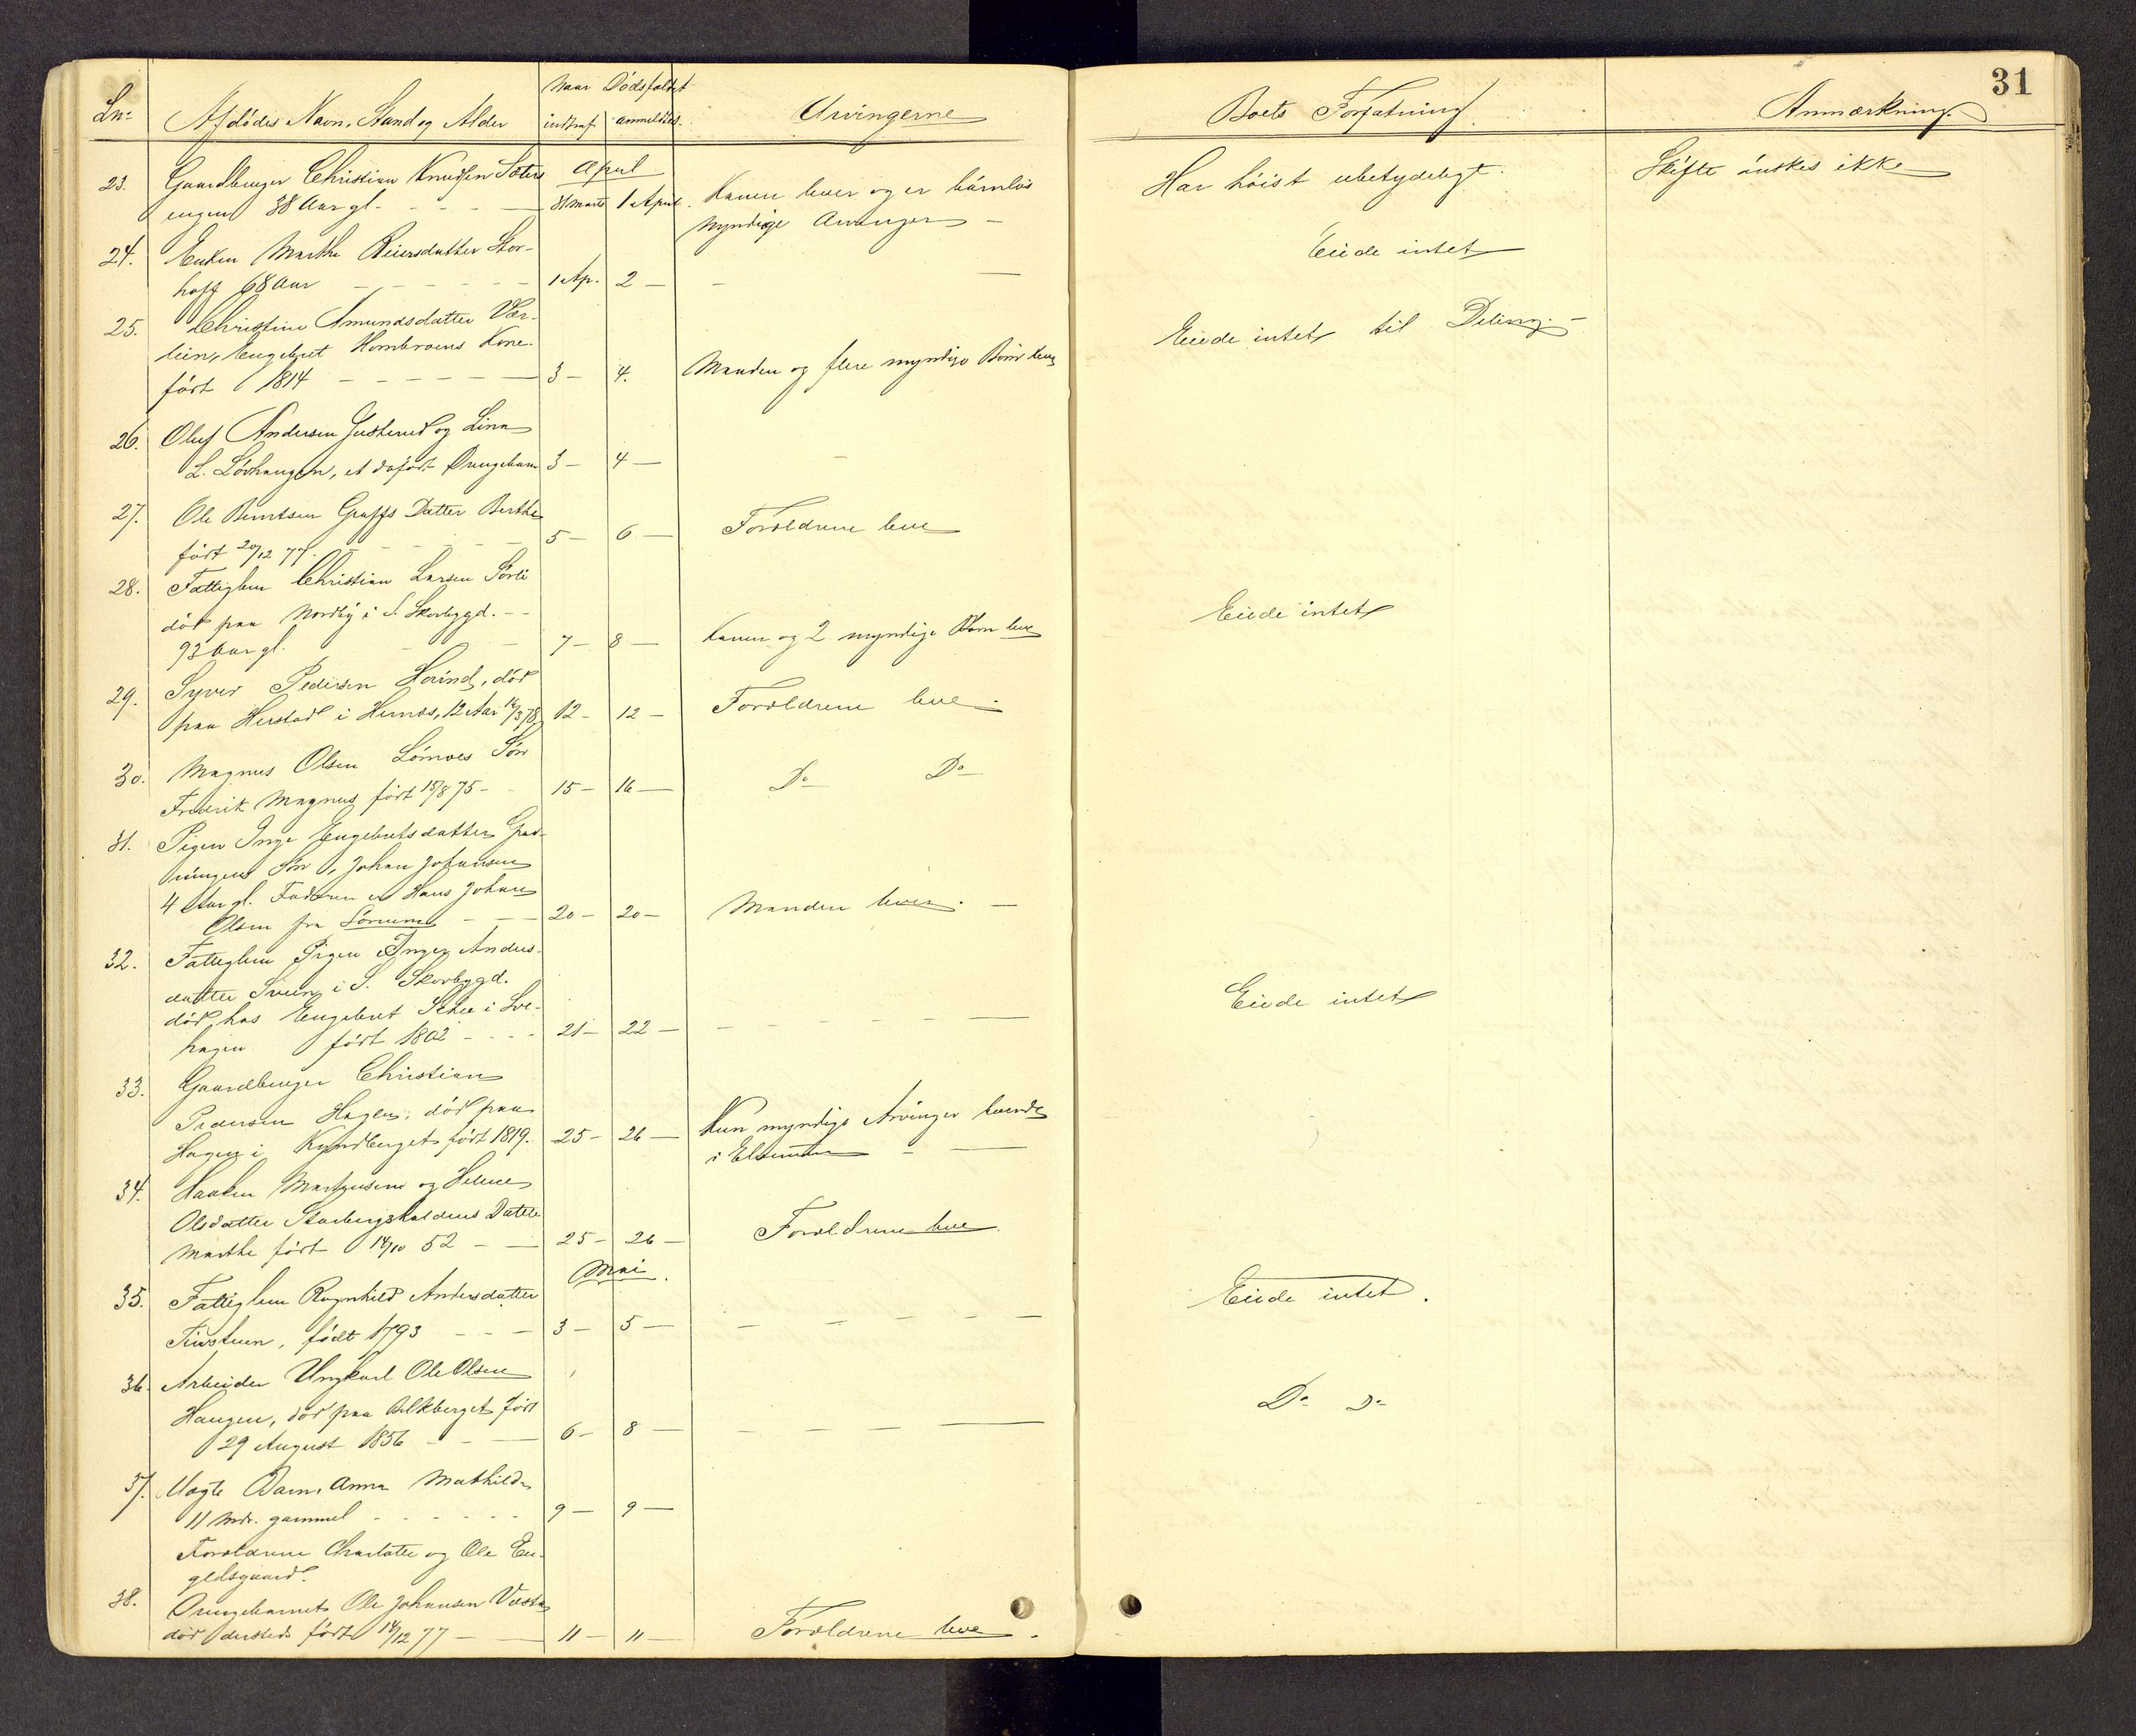 31
Naar Dødsfaldet
Ln: Afdødes Navn, Stand og Alder indtraf anmeldtes Arvingerne Boets Forfatning Anmærkning
April
23. Gaardbruger Christian Knudsen Sæters Har høist ubetydeligt. Skifte ønskes ikke
engen 38 Aar gl. 31 Marts 1 April. Konen lever og er barnløs
Myndige Arvinger
24. Enken Marthe Reiersdatter Stor- Eiede intet
hoff 68 Aar 1 Ap. 2
25. Christine Amundsdatter Vær-
lien, Engebret Hornbroens Kone. Eiede intet til Deling.
født 1814 3 4. Manden og flere myndige Børn leve
26. Oluf Andersen Justerud og Lina
L. Løvhaugen, et døfødt Drengebarn 3 4
27. Ole Berntsen Graffs Datter Berthe
født 20/12 77. 5 6 Forældrene leve
28. Fattiglem Christian Larsen Sørli
død paa Nordby i S. Skovbygd. Eiede intet
93 Aar gl. 7 8 Konen og 2 myndige Børn leve
29. Syver Pedersen Horind, død
paa Herstad i Hernæs, 12 Aar 16/3 78 12 12 Forældrene leve.
30. Magnus Olsen Lømoes Søn
Fredrik Magnus født 15/8 75 15 16 Do Do
31. Pigen Inge Engebretsdatter Grad-
Søn, Johan Johansen
4 Aar gl. Faderen er Hans Johan
Olsen fra Sørum 20 20 Manden lever.
32. Fattiglem Pigen Inger Anders-
datter Sveen i S. Skovbygd.
død hos Engebret i Lve- Eiede intet
hagen født 1802 21 22
33. Gaardbruger Christian
Pedersen Hagen, død paa
Hagen i Kyndberget født 1819. 25 26 Kun myndige Arvinger boende
i Elverum
34. Haaken Martinsens og Helene
Olsdatter Starbergskoldens Datter
Marthe født 14/10 52 25 26 Forældrene leve
Mai.
35. Fattiglem Ragnhild Andersdatter Eiede intet.
født 1793 3 5
36. Arbeider Ungkarl Ole Olsen
Haugen, død paa Bolkberget født Do Do
29 August 1856 6 8
37. Uægte Barn, Anna Mathilde
11 Mdr. gammel 9 9
Forældrene Charlotte og Ole En-
gelsgaard.
38. Drengebarnet Ole Johansen Væsta
død dersteds født 14/12 77 11 11 Forældrene leve.